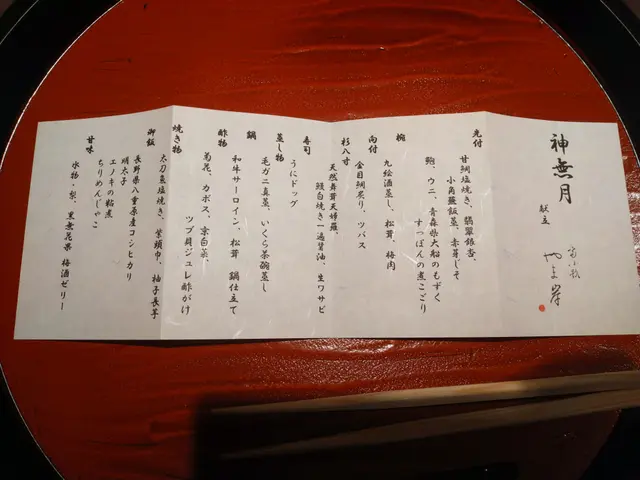 神無月
献立
先付
甘鯛塩焼き、翡翠銀杏、
小角羅飯蒸、赤芽じそ
鮑、ウニ、青森県大船のもずく
すっぽんの煮こごり
椀
九絵酒蒸し、松茸、梅肉
向付
金目鯛炙り、ツバス
杉八寸
天然舞茸天婦羅、
鰻白焼き一過醤油、生ワサビ
寿司
うにドッグ
蒸し物
毛ガニ真蒸、いくら茶碗蒸し
鍋
和牛サーロイン、松茸 鍋仕立て
酢物
菊花、カボス、京白菜、
ツブ貝ジュレ酢がけ
焼き物
太刀魚塩焼き、紫頭巾、柚子長芋
御飯
長野県八重原産コシヒカリ
明太子
エノキの粘煮
ちりめんじゃこ
甘味
水物・梨、黒無花果 梅酒ゼリー